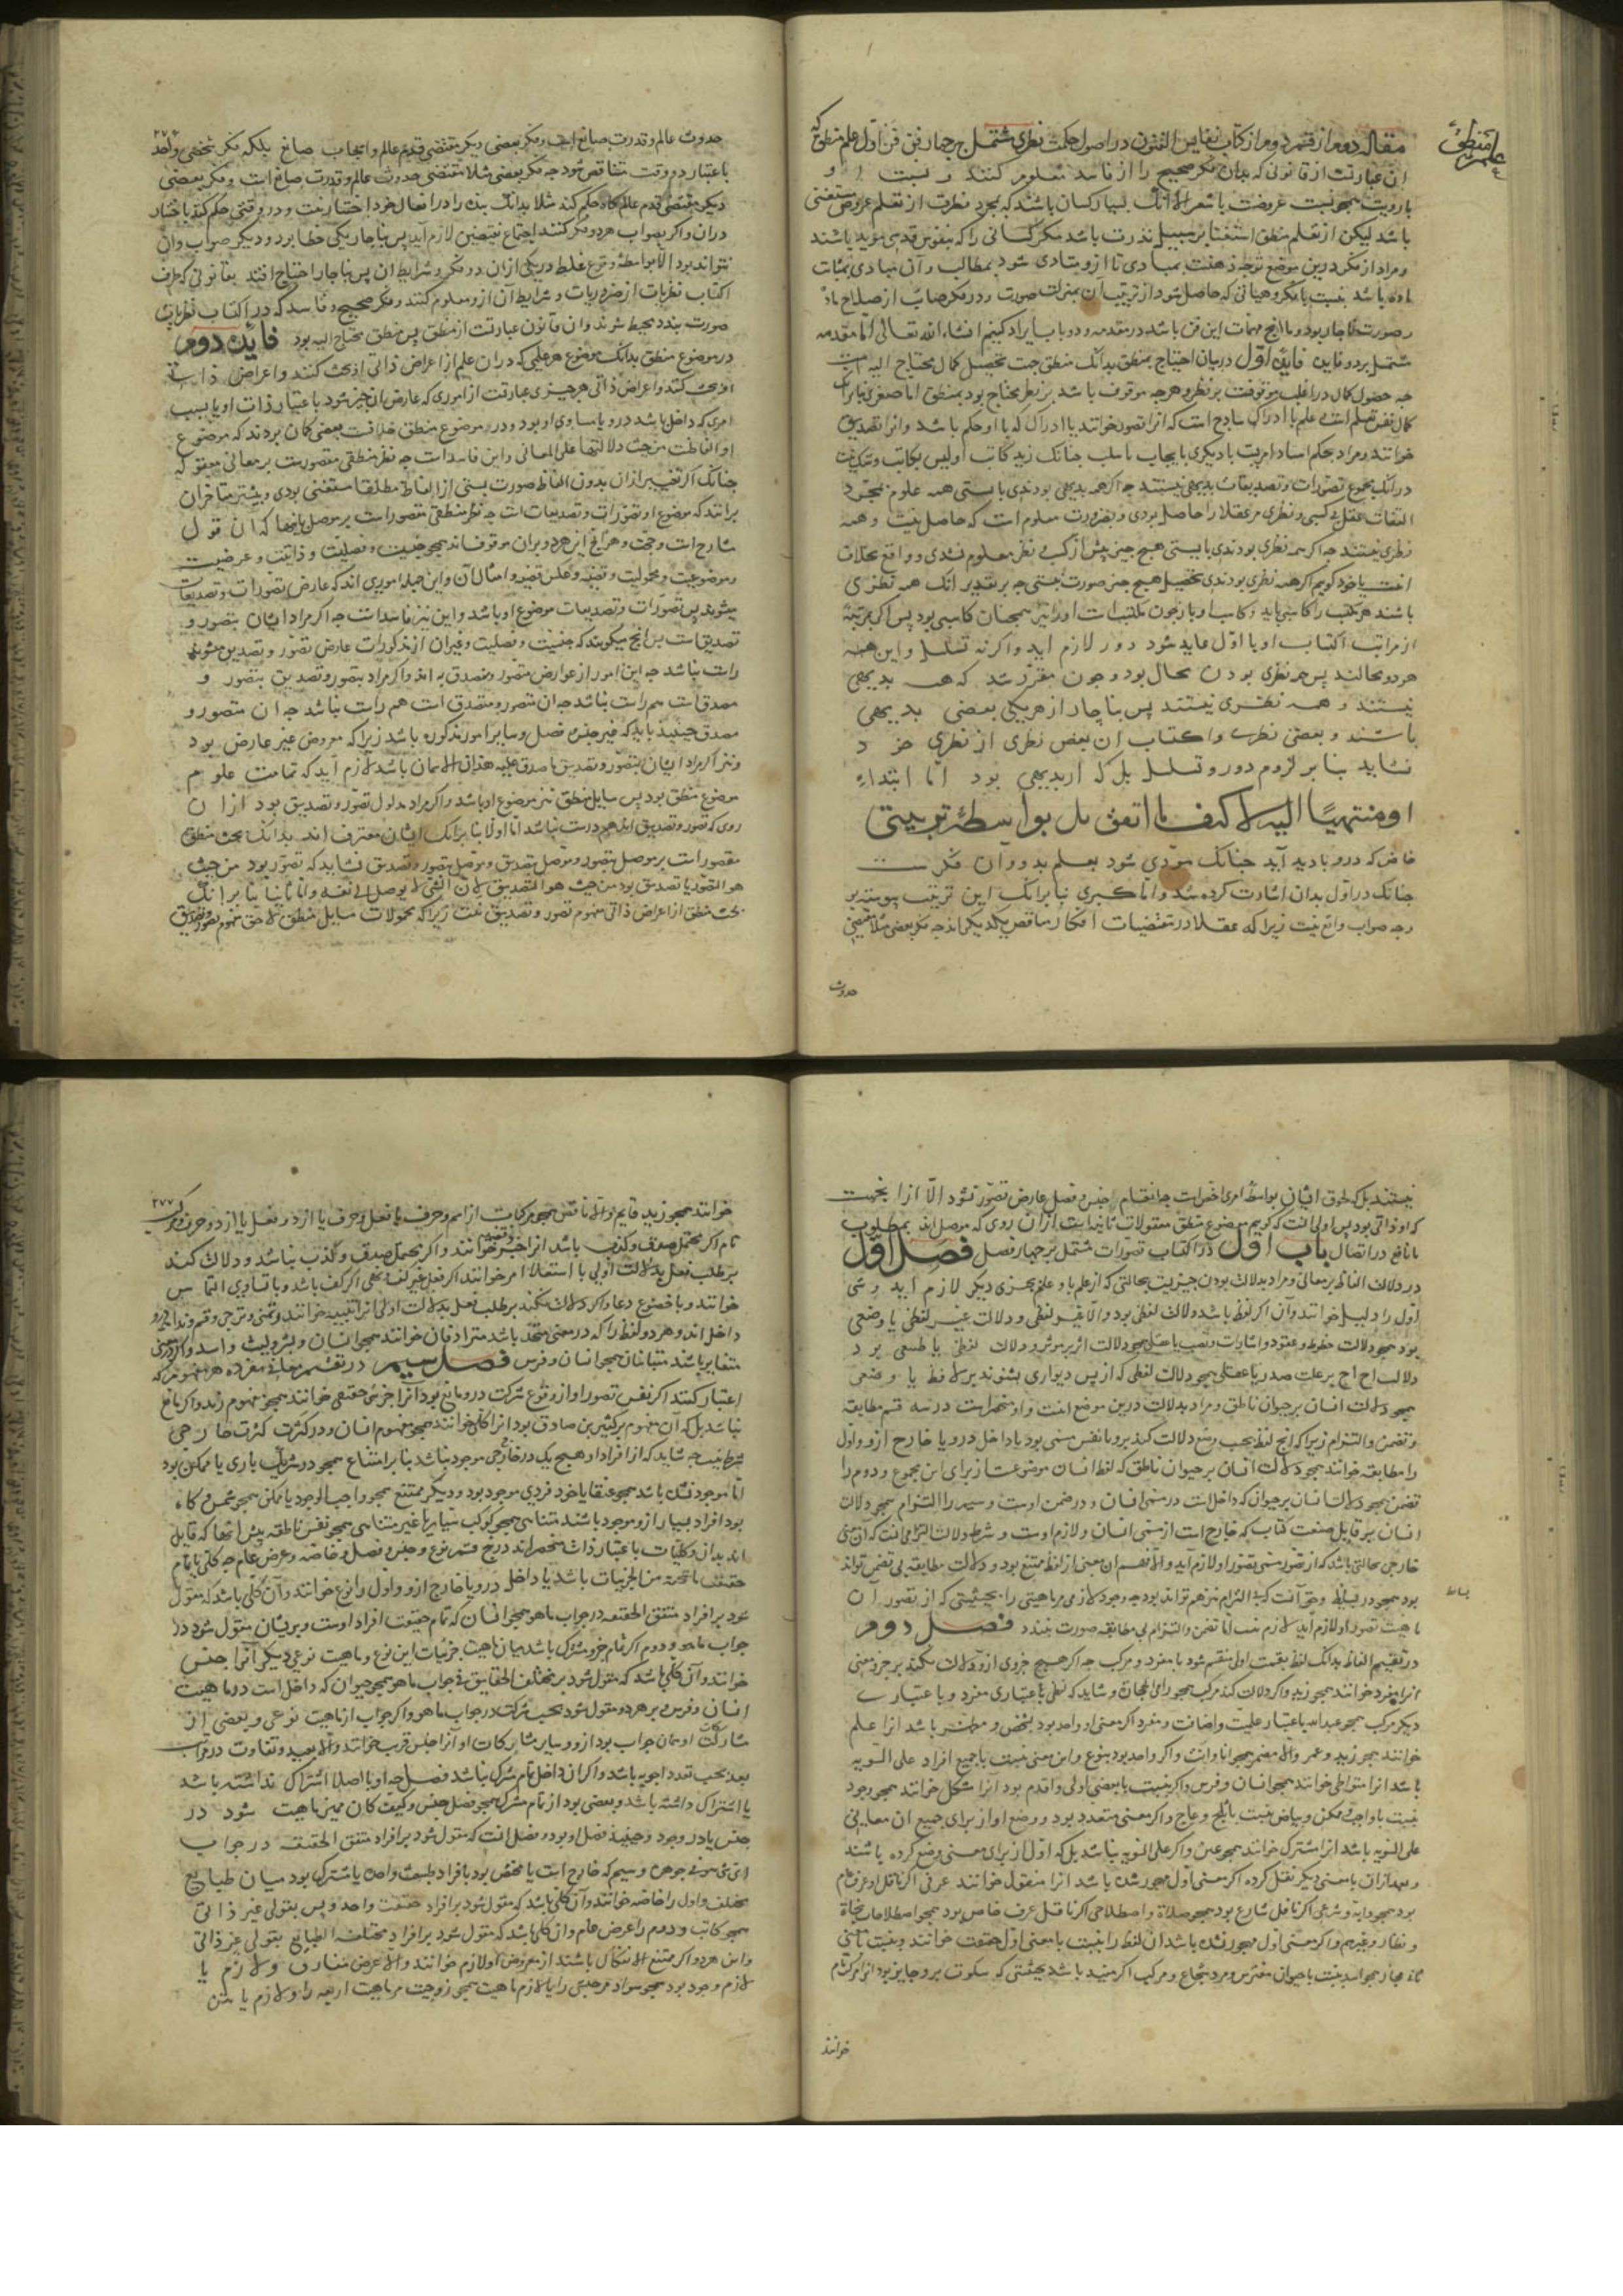 علم منطق
مقاله دوم از قسم دوم از کتاب نفایس الفنون در اصول حکمت نظری مشتمل بر چهار فن فن اول علم منطق که
آن عبارتست از قانونی که بدان فکر صحیح را از فاسد معلوم کنند و نسبت او
با رویت همچو نسبت عروضست با شعر الا آنک بسیار کسان باشند که بمجرد فطرت از تعلم عروض مستغنی
باشد لیکن از تعلم منطق استغنا بر سبیل ندرت باشد مگر کسانی را که بنفوس قدسی موید باشند
و مراد از فکر درین موضع توجه ذهنست بمبادی تا ازو متادی شود بمطالب و آن مبادی بمثابت
ماده باشد نسبت با فکر و هیاتی که حاصل شود از ترتیب آن بمنزلت صورت و در فکر صایب از صلاح ماده
و صورت ناچار بود و ما انچ مهمات این فن باشد در مقدمه و دو باب ایراد کنیم انشاء الله تعالی اما مقدمه
مشتمل بر دو فایده فایده اول در بیان احتیاج بمنطق بدانک منطق جهت تحصیل کمال محتاج الیه است
چه حصول کمال در اغلب موقوفست بر نظر و هرچه موقوف باشد بر نظر محتاج بود بمنطق اما صغری بنابر آنک
کمال نفس بعلم است و علم یا ادراک ساذج است که انرا تصور خوانند یا ادراک که با او حکم باشد و انرا تصدیق
خوانند و مراد بحکم اسناد امریست با دیگری بایجاب یا سلب چنانک زید کاتب او لیس بکاتب و شک نیست
در آنک مجموع تصورات و تصدیقات بدیهی نیستند چه اگر همه بدیهی بودندی بایستی همه علوم بمجرد
التفات عقل بی کسبی و نظری مر عقلا را حاصل بودی و بضرورت معلوم است که حاصل نیست و همه
نظری نیستند چه اگر همه نظری بودندی بایستی هیچ چیز پیش از کسب و نظر معلوم نشدی و واقع بخلاف
انست یا خود گوییم اگر همه نظری بودندی تحصیل هیچ چیز صورت نبستی چه بر تقدیر انک همه نظری
باشند هر مکتسب را کاسبی باید و کاسب او باز چون مکتسب است او را نیز همچنان کاسبی بود پس اگر بمرتبه
از مراتب اکتساب او با اول عاید شود دور لازم اید و اگر نه تسلسل و این هر
هر دو محالند پس همه نظری بودن محال بود و چون مقرر شد که همه بدیهی
نیستند و همه نظری نیستند پس بناچار از هریکی بعضی بدیهی
باشند و بعضی نظری و اکتساب آن بعض نظری از نظری خز د
نشاید بنابر لزوم دور و تسلسل بل که از بدیهی بود اما ابتداء
او منتهیا الیه لا کیف ما اتفق بل بواسطه ترتیبی
خاص که درو بادید آید چنانک مودی شود بعلم بدو و آن فکرست
چنانک در اول بدان اشارت کرده شد و اما کبری بنابر آنک این ترتیب پیوسته بر
وجه صواب واقع نیست زیرا که عقلا در مقتضیات افکار مناقض یکدیگراند چه فکر بعضی مثلا مقتضی
حدوث
۲۷۶
حدوث عالم و قدرت صانع است و فکر بعضی دیگر مقتضی قدم عالم و ایجاب صانع بلکه فکر شخصی واحد
باعتبار دو وقت متناقض شود چه فکر بعضی مثلا مقتضی حدوث عالم و قدرت صانع است و فکر بعضی
دیگر مقتضی قدم عالم گاه حکم کند مثلا بدانک بنده را در افعال خود اختیار نیست و در وقتی حکم کند باختیار
در آن و اگر بصواب هر دو فکر کنند اجتماع نقیضین لازم آید پس بناچار یکی خطا بود و دیگر صواب و آن
نتواند بود الا بواسطه وقوع غلط در یکی از آن دو فکر و شرایط آن پس بناچار احتیاج افتد بقانونی که طرف
اکتساب نظریات از ضروریات و شرایط آن ازو معلوم کنند و فکر صحیح و فاسد که در اکتساب نظریات
صورت بندد محیط شوند و آن قانون عبارتست از منطق پس منطق محتاج الیه بود فایده دوم
در موضوع منطق بدانک موضوع هر علمی که در آن علم از اعراض ذاتی او بحث کنند و اعراض ذات
او بحث کنند و اعراض ذاتی هر چیزی عبارتست از اموری که عارض آن چیز شود باعتبار ذات او یا بسبب
امری که داخل باشد درو یا مساوی او بود و در موضوع منطق خلافست بعضی گمان بردند که موضوع
او الفاظست من حیث دلالتها علی المعانی و این فاسد است چه نظر منطقی مقصورست بر معانی معقوله
چنانک اگر تعبیر از آن بدون الفاظ صورت بستی از الفاظ مطلقا مستغنی بودی و بیشتر متاخران
برآنند که موضوع او تصورات و تصدیقات است چه نظر منطقی مقصور است بر موصل بانها که آن قول
شارح است و حجت و هر انچ این هر دو بر آن موقوف اند همچو جنسیت و فصلیت و ذاتیت و عرضیت
و موضوعیت و محمولیت و قضیه و عکس قضیه و امثال آن و این جمله اموری اند که عارض تصورات و تصدیقات
میشوند پس تصورات و تصدیقات موضوع او باشد و این نیز فاسد است چه اگر مراد ایشان بتصور و
تصدیق است پس انچ میگویند که جنسیت و فصلیت و غیر آن از مذکورات عارض تصور و تصدیق میشوند
راست نباشد چه این امور از عوارض متصور و متصدق به اند و اگر مراد بتصور و تصدیق متصور و
مصدق است هم راست نباشد چه ان متصور و متصدق است هم راست نباشد چه ان متصور و
مصدق حینئذ باید که غیر جنس و فصل و سایر امور مذکوره باشد زیرا که معروض غیر عارض بود
و نیز اگر مراد ایشان بتصور و تصدیق ما صدق علیه هذان الاسمان باشد لازم آید که تمامت علوم
موضوع منطق بود پس مسایل منطق نیز موضوع او باشد و اگر مراد مدلول تصور و تصدیق بود از آن
روی که تصور و تصدیق اند هم درست نباشد اما اولا بنابر آنک ایشان معترف اند بدانک بحث منطق
مقصور است بر موصل بتصور و موصل بتصدیق و موصل بتصور و تصدیق نشاید که تصور بود من حیث
هو التصور یا تصدیق بود من حیث هو التصدیق لان الشی لا یوصل الی نفسه و اما ثانیا بنابر آنک
بحث منطق از اعراض ذاتی مفهوم تصور و تصدیق نیست زیرا که محمولات مسایل منطق لاحق مفهوم تصور و تصدیق
نیستند بل که لحوق ایشان بواسطه امری اخص است چه انقسام جنس و فصل عارض تصور نشود الا از ان جهت
که او ذاتی بود پس اولی انست که گوییم موضوع منطق معقولات ثانیه است از آن روی که موصل اند بمطلوب
یا نافع در ایصال باب اول در اکتساب تصورات مشتمل بر چهار فصل فصل اول
در دلالت الفاظ بر معانی و مراد بدلالت بودن چیزیست بحالتی که از علم باو علم بچیزی دیگر لازم آید و شی
اول را دلیل خوانند و آن اگر لفظ باشد دلالت لفظی بود والا غیر لفظی و دلالت غیر لفظی یا وضعی
بود همچو دلالت خطوط و عقود و اشارات و نصب یا عقلی همچو دلالت اثر بر موثر و دلالت لفظی یا طبیعی بود
دلالت اح اح بر علت صدر یا عقلی همچو دلالت لفظی که از پس دیواری بشنوند بر لافظ یا وضعی
همچو دلالت انسان بر حیوان ناطق و مراد بدلالت درین موضع انست و او منحصر است در سه قسم مطابقه
و تضمن و التزام زیرا که انچ لفظ بحسب وضع دلالت کند برو یا نفس مسمی بود یا داخل درو یا خارج ازو و اول
را مطابقه خوانند همچو دلالت انسان بر حیوان ناطق که لفظ انسان موضوعست از برای این مجموع و دوم را
تضمن همچو دلالت انسان بر حیوان که داخل است در مسمی انسان و در ضمن اوست و سیم را التزام همچو دلالت
انسان بر قابل صنعت کتابت که خارج است از مسمی انسان و لازم اوست و شرط دلالت التزامی انست که آن معنی
خارجی بحالتی باشد که از تصور مسمی تصور او لازم آید والا فهم آن معنی از لفظ ممتنع بود و دلالت مطابقه بی تضمن تواند
بود همچو در بسایط و حق آنست که بی التزام نیز هم تواند بود چه وجود لازمی هر ماهیتی را بحیثیتی که از تصور آن
بسایط
ماهیت تصور او لازم آید لازم نیست اما تضمن و التزام بی مطابقه صورت نبندد فصل دوم
در تقسیم الفاظ بدانک لفظ بقسمت اولی منقسم شود بمفرد و مرکب چه اگر هیچ جزوی ازو دلالت نکند بر جزو معنی
انرا مفرد خوانند همچو زید و اگر دلالت کند مرکب همچو رامی الحجاره و شاید که لفظی باعتباری مفرد و باعتباری
دیگر مرکب همچو عبدالله باعتبار علمیت و اضافت و مفرد اگر معنی او واحد بود بشخص و مظهر باشد انرا علم
خوانند همچو زید و عمر والا مضمر همچو انا و انت و اگر واحد بود بنوع و این معنی نسبت با جمیع افراد علی السویه
باشد انرا متواطی خوانند همچو انسان و فرس و اگر نسبت با بعضی اولی و اقدم بود انرا مشکل خوانند همچو وجود
نسبت با واجب و ممکن و بیاض نسبت با ثلج و عاج و اگر معنی متعدد بود و وضع او از برای جمیع ان معانی
علی السویه باشد انرا مشترک خوانند همچو عین و اگر علی السویه نباشد بل که اول از برای معنی وضع کرده باشند
و بعد از آن با معنی دیگر نقل کرده اگر معنی اول مهجور شده باشد انرا منقول خوانند عرفی اگر ناقل او عرف عام
بود همچو دابه و شرعی اگر ناقل شارع بود همچو صلاة و اصطلاحی اگر ناقل عرف خاص بود همچو اصطلاحات نحاة
و نظار و غیرهم و اگر معنی اول مهجور نشده باشد ان لفظ را نسبت با معنی اول حقیقت خوانند و نسبت با معنی
ثانی مجاز همچو اسد نسبت با حیوان مفترس و مرد شجاع و مرکب اگر مفید باشد بحیثیتی که سکوت برو جایز بود انرا مرکب تام
خوانند
۲۷۷
خوانند همچو زید قایم والا ناقص همچو مرکبات از اسم و حرف یا فعل و حرف یا از دو فعل یا از دو حرف و مرکب
تام اگر محتمل صدق و کذب باشد انرا خبر و قضیه خوانند و اگر محتمل صدق و کذب نباشد و دلالت کند
بر طلب فعل بدلالت اولی با استعلا امر خوانند اگر فعل غیر کف باشد و نهی اگر کف باشد و با تساوی التماس
خوانند و با خضوع دعا و اگر دلالت نکند بر طلب فعل بدلالت اولی انرا تنبیه خوانند و تمنی و ترجی و قسم و ندا درو
داخل اند و هر دو لفظ را که در معنی متحد باشد مترادفان خوانند همچو انسان و بشر و لیث و اسد و اگر در معنی
متغایر باشند متباینان همچو انسان و فرس فصل سیم در تقسیم معانی مفرده هر مفهوم که
اعتبار کنند اگر نفس تصور او از وقوع شرکت درو مانع بود انرا جزئی حقیقی خوانند همچو مفهوم زید و اگر مانع
نباشد بل که آن مفهوم بر کثیرین صادق بود انرا کلی خوانند همچو مفهوم انسان و در کثرت کثرت خارجی
شرط نیست چه شاید که از افراد او هیچ یک در خارج موجود نباشد بنابر امتناع همچو در شریک باری یا ممکن بود
اما موجود نشده باشد همچو عنقا یا خود فردی موجود بود و دیگر ممتنع همچو واجب الوجود یا ممکن همچو شمس و گاه
بود افراد بسیار ازو موجود باشند متناهی همچو کواکب سیاره یا غیر متناهی همچو نفس ناطقه پیش انها که قایل
اند بدان و کلیات باعتبار ذات منحصر اند در پنج قسم نوع و جنس و فصل و خاصه و عرض عام چه کلی یا تمام
حقیقت ما تحته من الجزئیات باشد یا داخل درو یا خارج ازو و اول را نوع خوانند و آن کلی باشد که مقول
شود بر افراد متفق الحقیقه در جواب ما هو همچو انسان که تمام حقیقت افراد اوست و بریشان مقول شود در
جواب ما هو و دوم اگر تمام جزو مشترک باشد میان ماهیت جزئیات این نوع و ماهیت نوعی دیگر آنرا جنس
خوانند و آن کلی باشد که مقول شود بر مختلف الحقایق فی جواب ما هو همچو حیوان که داخل است در ماهیت
انسان و فرس و بر هر دو مقول شود بحسب شرکت در جواب ما هو و اگر جواب از ماهیت نوعی و بعضی از
مشارکات او همان جواب بود ازو و سایر مشارکات او آنرا جنس قریب خوانند والا بعید و تفاوت در مراتب
بعد بحسب تعدد اجوبه باشد و اگر ان داخل تمام مشترک نباشد فصل چه او یا اصلا اشتراک نداشته باشد
یا اشتراک داشته باشد و بعضی بود از تمام مشترک همچو فصل جنس و کیف کان ممیز ماهیت شود در
جنس یا در وجود و حینئذ فصل او بود و فصل انست که مقول شود بر افراد متفق الحقیقه در جواب
ای شی هو فی جوهره و سیم که خارج است یا مختص بود بافراد طبیعت واحده یا مشترک بود میان طبایع
مختلفه و اول را خاصه خوانند و آن کلی باشد که مقول شود بر افراد حقیقت واحد و بس بقولی غیر ذاتی
همچو کاتب و دوم را عرض عام و ان کلی باشد که مقول شود بر افراد مختلفه الطبایع بقولی غیر ذاتی
و این هر دو اگر ممتنع الانفکاک باشند از معروض او لازم خوانند والا عرض مفارق و لازم یا
لازم وجود بود همچو سواد مر حبشی را یا لازم ماهیت همچو زوجیت مر ماهیت اربعه را و لازم یا بین